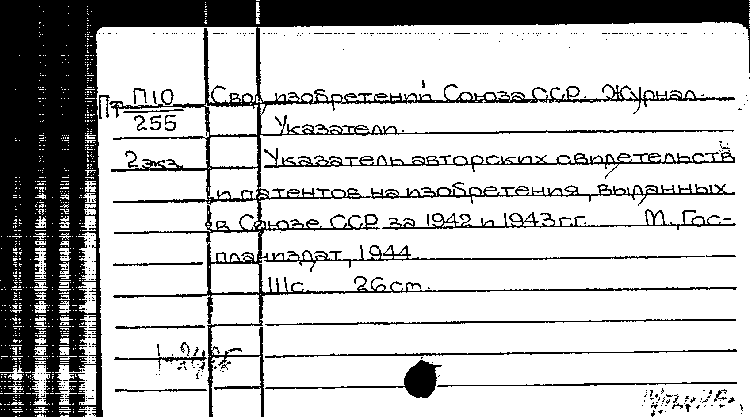 Пт П10 Свод изобретений Союза ССР. Журнал.
255 Указатели.
2экз. Указатель авторских свидетельств
и патентов на изобретения, выданных
в Союзе ССР за 1942 и 1943 г.г. М., Гос-
планиздат, 1944.
111с. 26cm.